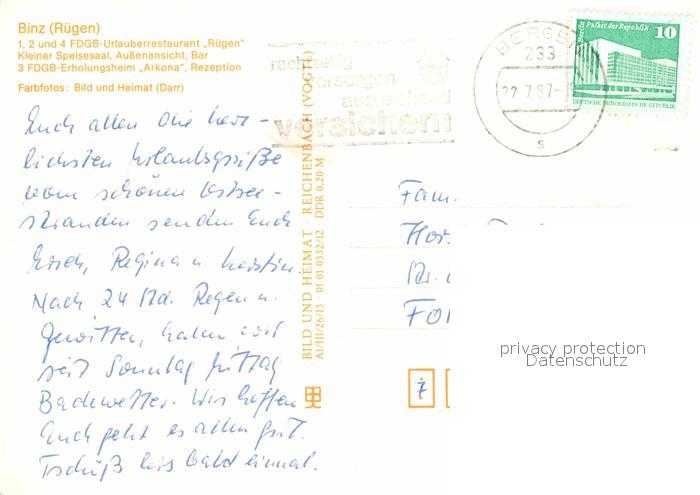 Binz (Rügen)
1, 2 und 4 FDGB-Urlauberrestaurant „Rügen"
Kleiner Speisesaal, Außenansicht, Bar
3 FDGB-Erholungsheim „Arkona", Rezeption
Farbfotos: Bild und Heimat (Darr)
Euch allen die herz-
lichsten Urlaubsgrüße
vom schönen Ostsee-
stranden senden Euch
Erich, Regina u. Kerstin.
Nach 24 Std. Regen u.
Gewitter, haben wir
seit Sonntag Mittag
Badewetter. Wir hoffen
Euch geht es allen gut.
Tschüß bis bald einmal.
BILD UND HEIMAT · REICHENBACH (VOGTL)
A1/III/26/13 · 01 01 0332/12 DDR 0,20 M
rechtzeitig
vorsorgen
ausreichend
versichern
BERGEN
233
22.7.87
s
Berlin Palast der Republik 10
DEUTSCHE DEMOKRATISCHE REPUBLIK
Fam.
Hor.
privacy protection
Datenschutz